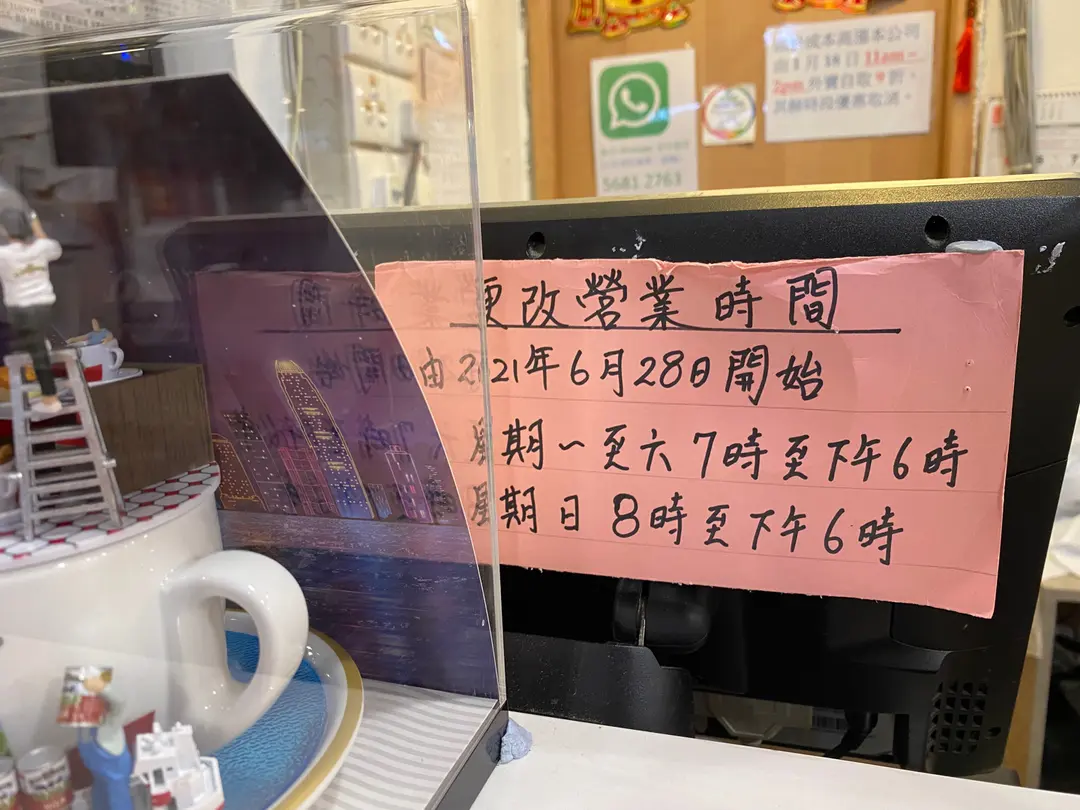 成本高漲本公司
由1月18日11am-
2pm外賣自取9折,
其餘時段優惠取消。
5681 2763
更改營業時間
由2021年6月28日開始
星期一至六 7時至下午6時
星期日 8時至下午6時